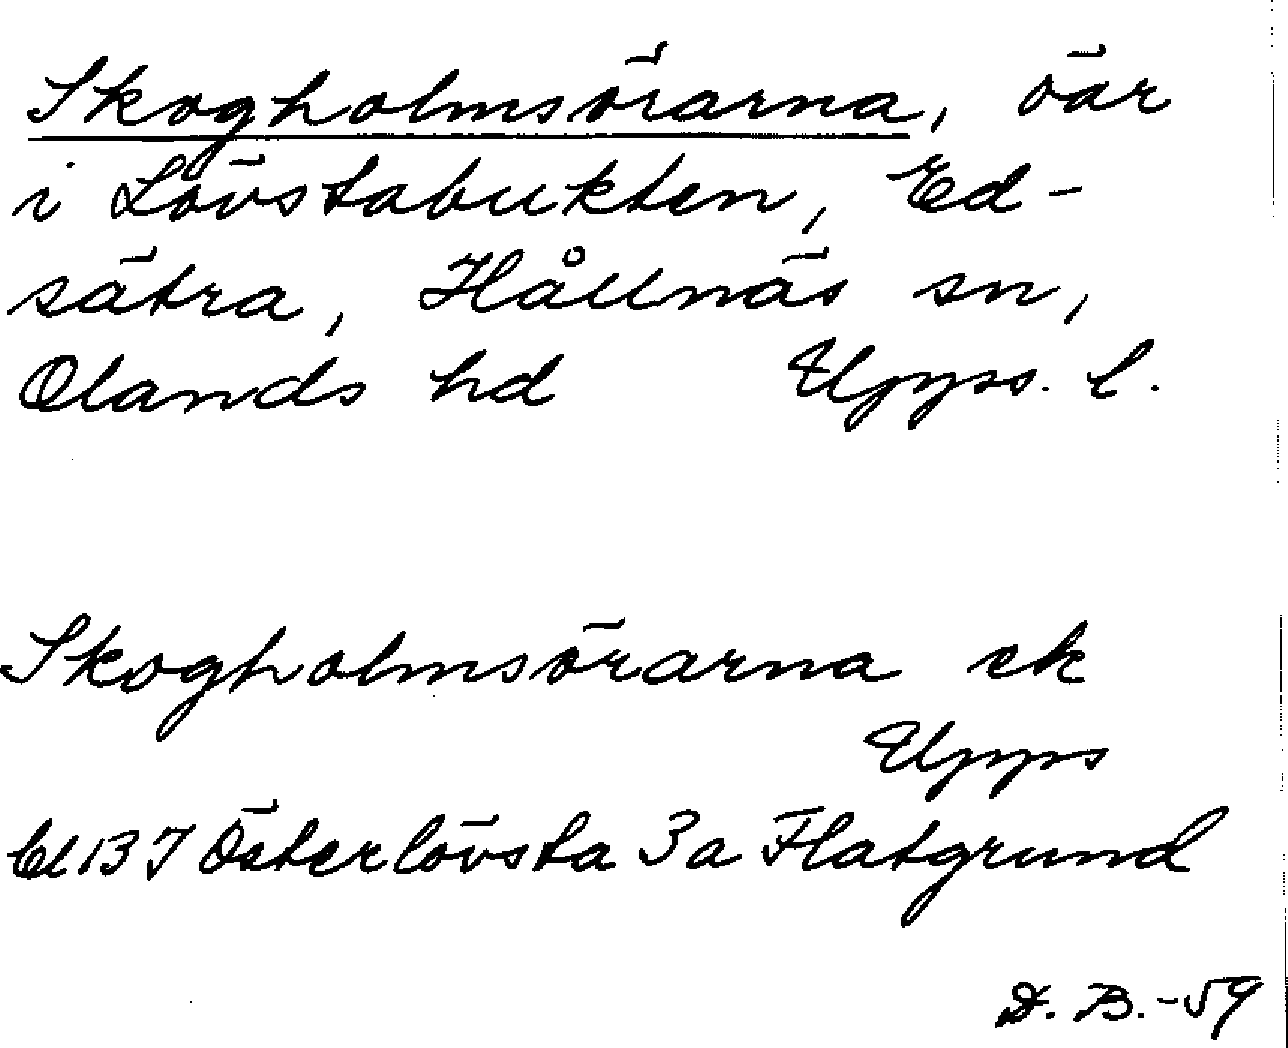 Skogholmsörarna, öar
i Lövstabukten, Ed-
sätra, Hållnäs sn,
Olands hd Upps. l.
Skogholmsörarna ek
Upps
bl 137 Österlövsta 3a Flatgrund
D. B. -59